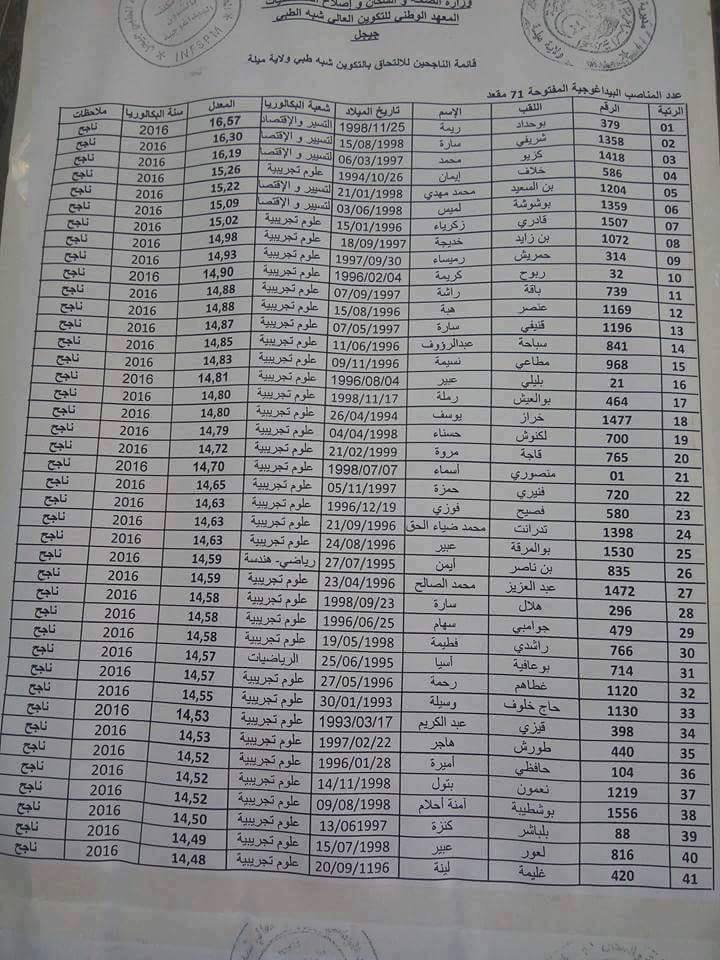 وزارة الصحة و السكان و إصلاح المستشفيات
المعهد الوطني للتكوين العالي شبه الطبي
جيجل
INFSPM
ولاية ميلة
قائمة الناجحين للالتحاق بالتكوين شبه طبي ولاية ميلة
عدد المناصب البيداغوجية المفتوحة 71 مقعد
الرتبة الرقم اللقب الإسم تاريخ الميلاد شعبة البكالوريا المعدل سنة البكالوريا ملاحظات
01 379 بوحداد ريمة 1998/11/25 التسير والإقتصاد 16,57 2016 ناجح
02 1358 شريفي سارة 15/08/1998 لتسيير و الإقتصا 16,30 2016 ناجح
03 1418 كربو محمد 06/03/1997 لتسيير و الإقتصا 16,19 2016 ناجح
04 586 خلاف إيمان 1994/10/26 علوم تجريبية 15,26 2016 ناجح
05 1204 بن السعيد محمد مهدي 21/01/1998 لتسيير و الإقتصا 15,22 2016 ناجح
06 1359 بوشوشة لميس 03/06/1998 لتسيير و الإقتصا 15,09 2016 ناجح
07 1507 قادري زكرياء 15/01/1996 علوم تجريبية 15,02 2016 ناجح
08 1072 بن زايد خديجة 18/09/1997 علوم تجريبية 14,98 2016 ناجح
09 314 حمريش رميساء 1997/09/30 علوم تجريبية 14,93 2016 ناجح
10 32 ربوح كريمة 1996/02/04 علوم تجريبية 14,90 2016 ناجح
11 739 باقة راشة 07/09/1997 علوم تجريبية 14,88 2016 ناجح
12 1169 عنصر هبة 15/08/1996 علوم تجريبية 14,88 2016 ناجح
13 1196 قنيفي سارة 07/05/1997 علوم تجريبية 14,87 2016 ناجح
14 841 سباحة عبدالرؤوف 11/06/1996 علوم تجريبية 14,85 2016 ناجح
15 968 مطاعي نسيمة 09/11/1996 علوم تجريبية 14,83 2016 ناجح
16 21 بليلي عبير 1996/08/04 علوم تجريبية 14,81 2016 ناجح
17 464 بوالعيش رملة 1998/11/17 علوم تجريبية 14,80 2016 ناجح
18 1477 خراز يوسف 26/04/1994 علوم تجريبية 14,80 2016 ناجح
19 700 لكنوش حسناء 04/04/1998 علوم تجريبية 14,79 2016 ناجح
20 765 قاجة مروة 21/02/1999 علوم تجريبية 14,72 2016 ناجح
21 01 منصوري أسماء 1998/07/07 علوم تجريبية 14,70 2016 ناجح
22 720 فنيري حمزة 05/11/1997 علوم تجريبية 14,65 2016 ناجح
23 580 فصيح فوزي 1996/12/19 علوم تجريبية 14,63 2016 ناجح
24 1398 تدرانت محمد ضياء الحق 21/09/1996 علوم تجريبية 14,63 2016 ناجح
25 1530 بوالمرقة عبير 24/08/1996 علوم تجريبية 14,63 2016 ناجح
26 835 بن ناصر أيمن 27/07/1995 رياضي- هندسة 14,59 2016 ناجح
27 1472 عبد العزيز محمد الصالح 23/04/1996 علوم تجريبية 14,59 2016 ناجح
28 296 هلال سارة 1998/09/23 علوم تجريبية 14,58 2016 ناجح
29 479 جوامبي سهام 1996/06/25 علوم تجريبية 14,58 2016 ناجح
30 766 راشدي فطيمة 19/05/1998 علوم تجريبية 14,58 2016 ناجح
31 714 بوعافية آسيا 25/06/1995 الرياضيات 14,57 2016 ناجح
32 1120 غطاهم رحمة 27/05/1996 علوم تجريبية 14,57 2016 ناجح
33 1130 حاج خلوف وسيلة 30/01/1993 علوم تجريبية 14,55 2016 ناجح
34 398 قيزي عبد الكريم 1993/03/17 علوم تجريبية 14,53 2016 ناجح
35 440 طورش هاجر 1997/02/22 علوم تجريبية 14,53 2016 ناجح
36 104 حافظي أميرة 1996/01/28 علوم تجريبية 14,52 2016 ناجح
37 1219 نعمون بتول 14/11/1998 علوم تجريبية 14,52 2016 ناجح
38 1556 بوشطيبة آمنة أحلام 09/08/1998 علوم تجريبية 14,52 2016 ناجح
39 88 بلباشر كنزة 13/061997 علوم تجريبية 14,50 2016 ناجح
40 816 لعور عبير 15/07/1998 علوم تجريبية 14,49 2016 ناجح
41 420 غليمة لينة 20/09/1196 علوم تجريبية 14,48 2016 ناجح